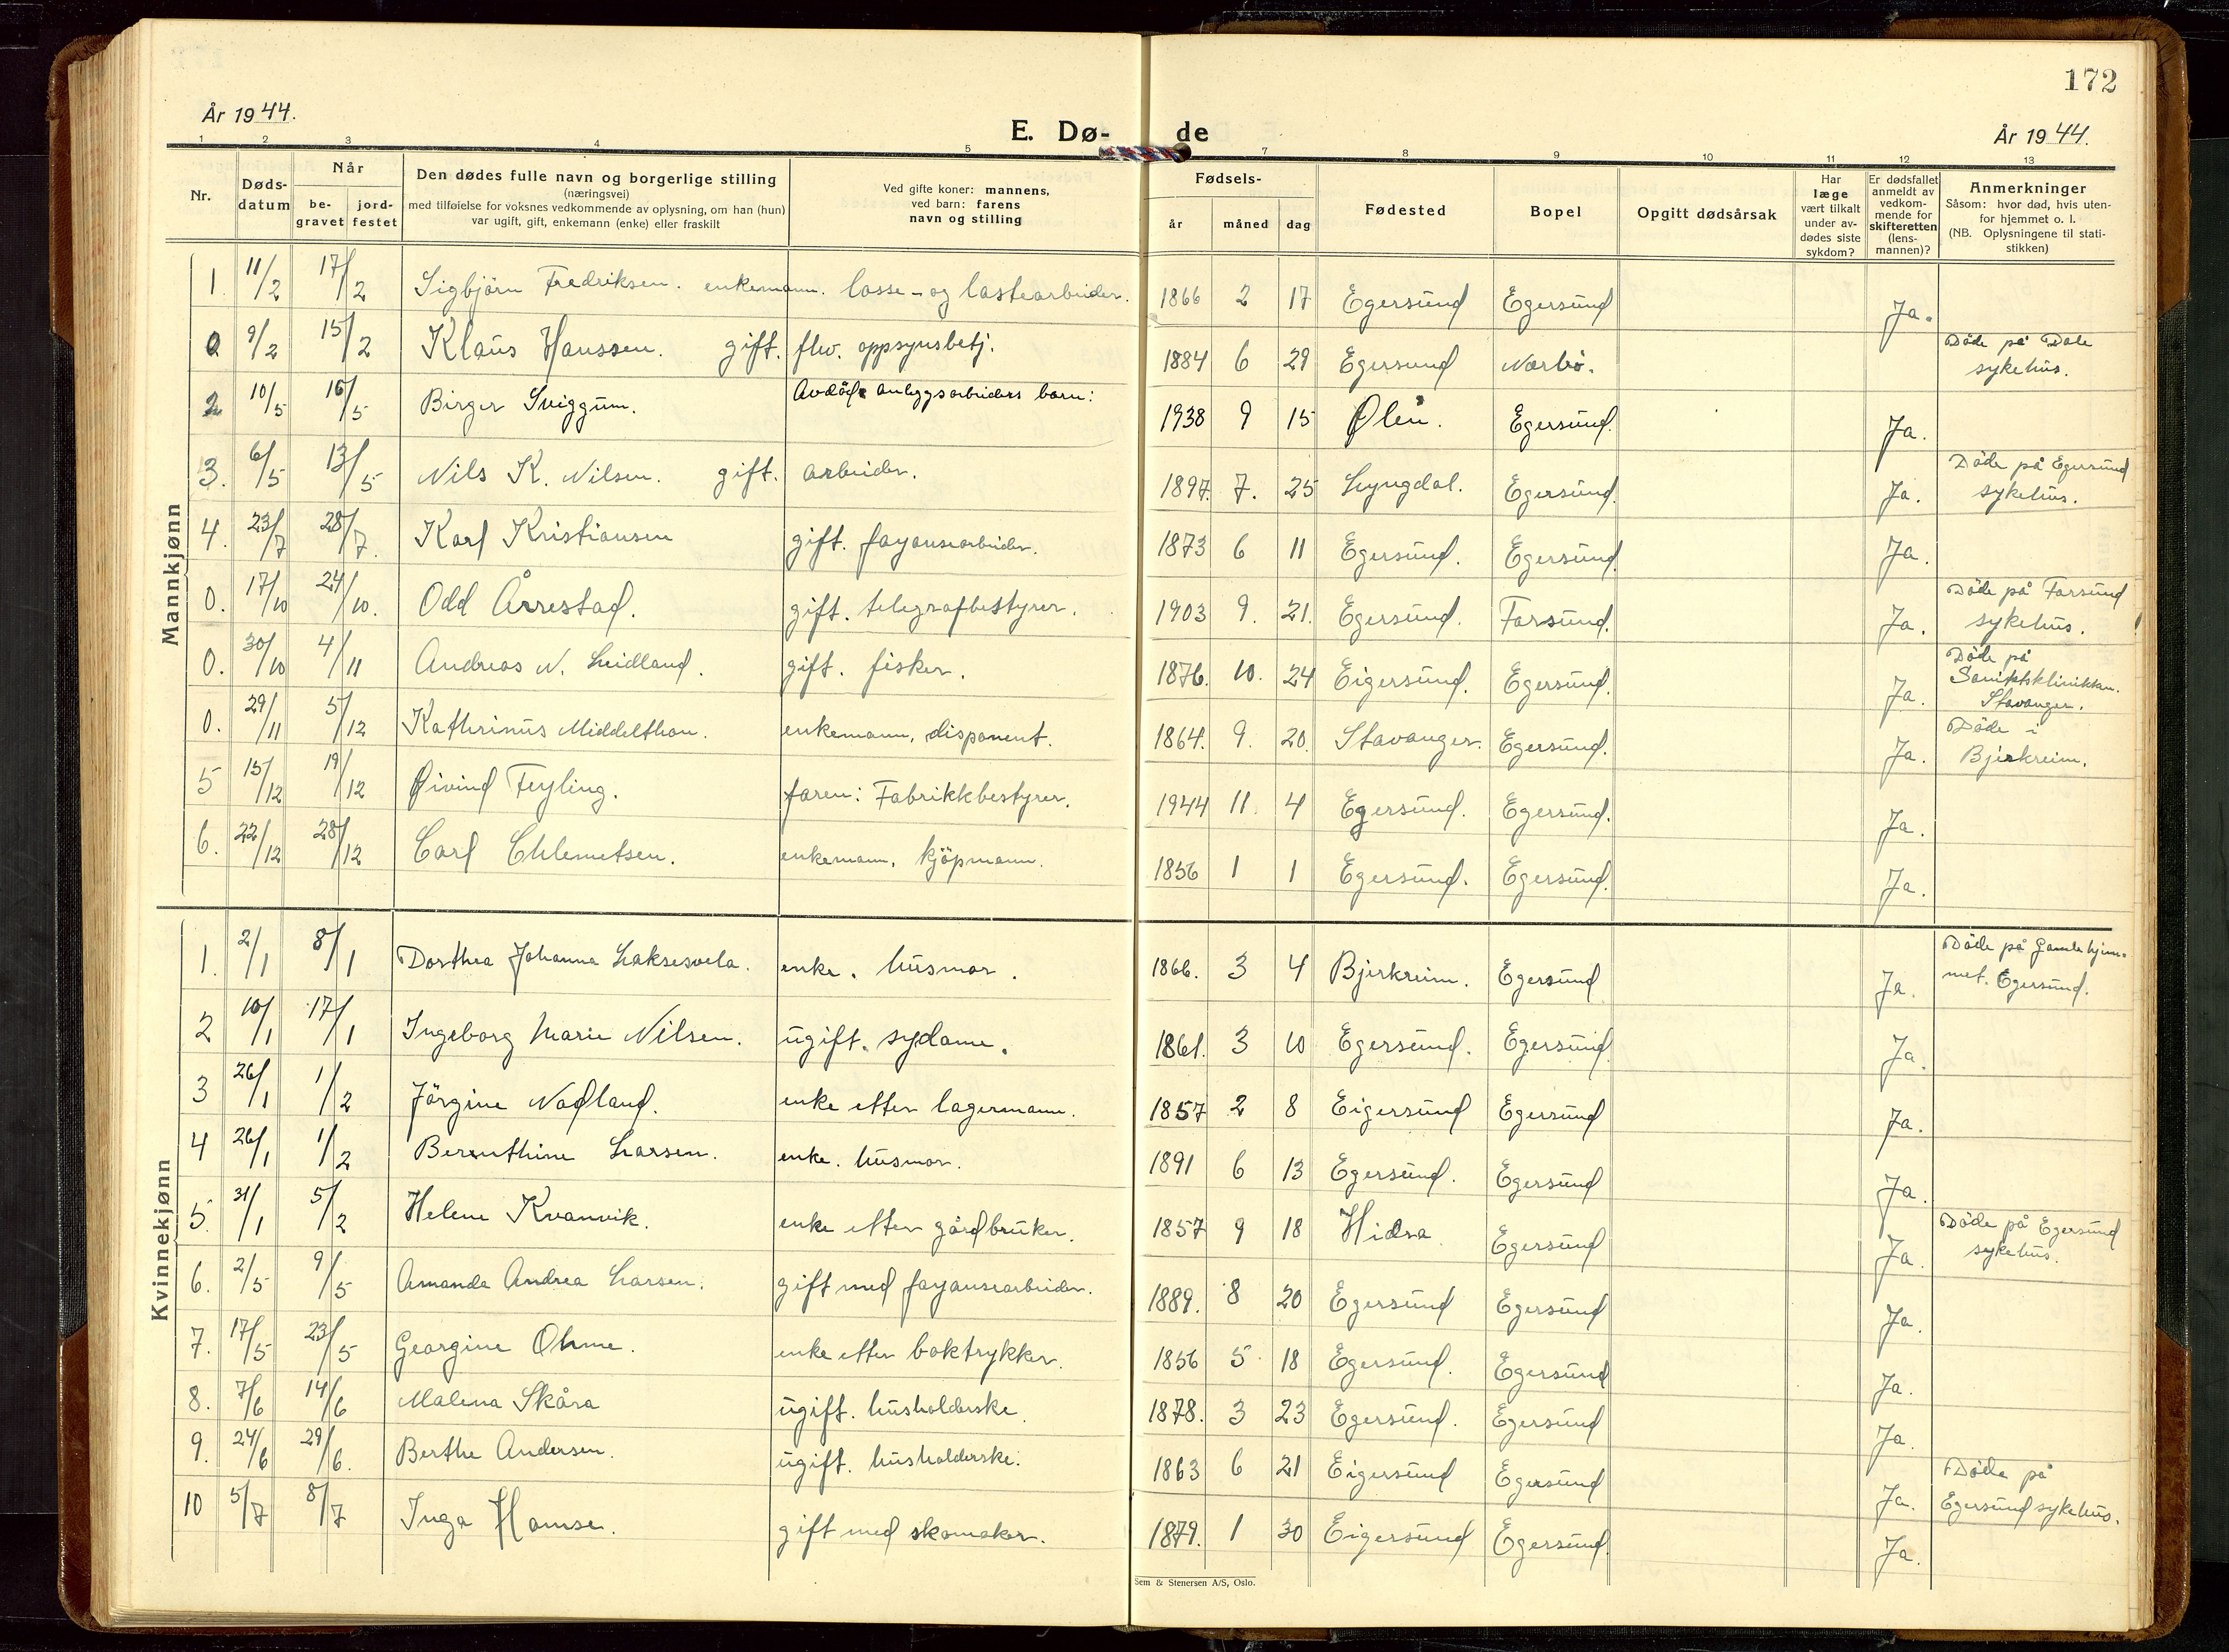 172
År 1944.
E. Dø- de
År 1944.
1 2 3 4 5 7 8 9 10 11 12 13
Nr. Døds-datum Når be-gravet jord-festet Den dødes fulle navn og borgerlige stilling (næringsvei) med tilføielse for voksnes vedkommende av oplysning, om han (hun) var ugift, gift, enkemann (enke) eller fraskilt Ved gifte koner: mannens, ved barn: farens navn og stilling Fødsels- år måned dag Fødested Bopel Opgitt dødsårsak Har læge vært tilkalt under av-dødes siste sykdom? Er dødsfallet anmeldt av vedkom-mende for skifteretten (lens-mannen)? Anmerkninger Såsom: hvor død, hvis uten-for hjemmet o. l. (NB. Oplysningene til stati-stikken)
Mannkjønn
1 11/2 17/2 Sigbjörn Fredriksen. enkemann. losse- og lastearbeider. 1866 2 17 Egersund Egersund Ja.
0 9/2 15/2 Klaus Hanssen. gift. flw. oppsynsbetj. 1884 6 29 Egersund Nærbö. Döde på Dale sykehus.
2 10/5 16/5 Birger Sviggum. Avdöde anleggsarbeiders barn: 1938 9 15 Ølen. Egersund. Ja.
3. 6/5 13/5 Nils K. Nilsen. gift. arbeider. 1897. 7. 25 Lyngdal. Egersund. Ja. Döde på Egersund sykehus.
4. 23/7 28/7. Karl Kristiansen gift. fayansearbeider. 1873 6 11 Egersund. Egersund. Ja.
0. 17/10 24/10. Odd Årrestad. gift. telegrafbestyrer. 1903 9. 21. Egersund. Farsund. Ja. Döde på Farsund sykehus.
0. 30/10 4/11 Andreas N. Leidland. gift. fisker. 1876. 10. 24 Eigersund. Egersund. Ja. Döde på Sanitetsklinikken. Stavanger.
0. 29/11 5/12 Kathrinus Middelthon. enkemann, disponent. 1864. 9. 20. Stavanger. Egersund. Ja. Döde i Bjerkreim.
5 15/12 19/12 Øivind Feyling. faren: Fabrikkbestyrer. 1944 11. 4 Egersund. Egersund. Ja.
6. 22/12 28/12 Carl Chlemetsen. enkemann, kjöpmann. 1856 1 1 Egersund. Egersund. Ja.
Kvinnekjønn
1. 2/1 8/1 Dorthea Johanna Laksesvela. enke. husmor. 1866. 3 4 Bjerkreim. Egersund Ja. Döde på Gamlehjem-met. Egersund.
2 10/1 17/1 Ingeborg Marie Nilsen. ugift. sydame. 1861. 3 10 Egersund. Egersund Ja.
3 26/1 1/2 Jörgine Nodland. enke etter lagermann. 1857 2 8 Eigersund Egersund Ja.
4 26/1 1/2 Berenthine Larsen. enke. husmor. 1891 6 13 Egersund. Egersund Ja.
5. 31/1 5/2 Helene Kvanvik. enke etter gårdbruker. 1857 9 18 Hidra Egersund Ja. Döde på Egersund sykehus.
6. 2/5 9/5 Amanda Andrea Larsen. gift med fayansearbeider. 1889. 8 20 Egersund Egersund Ja.
7. 17/5 23/5 Georgine Ohme. enke etter boktrykker. 1856 5 18 Egersund. Egersund Ja.
8. 7/6 14/6 Malena Skåra ugift. husholderske. 1878. 3 23 Egersund. Egersund Ja.
9. 24/6 29/6. Berthe Andersen. ugift. husholderske. 1863 6 21 Eigersund Egersund Ja. Döde på Egersund sykehus.
10 5/7 8/7 Inga Hamse. gift med skomaker. 1879. 1 30 Eigersund Egersund. Ja.
Sem & Stenersen A/S, Oslo.